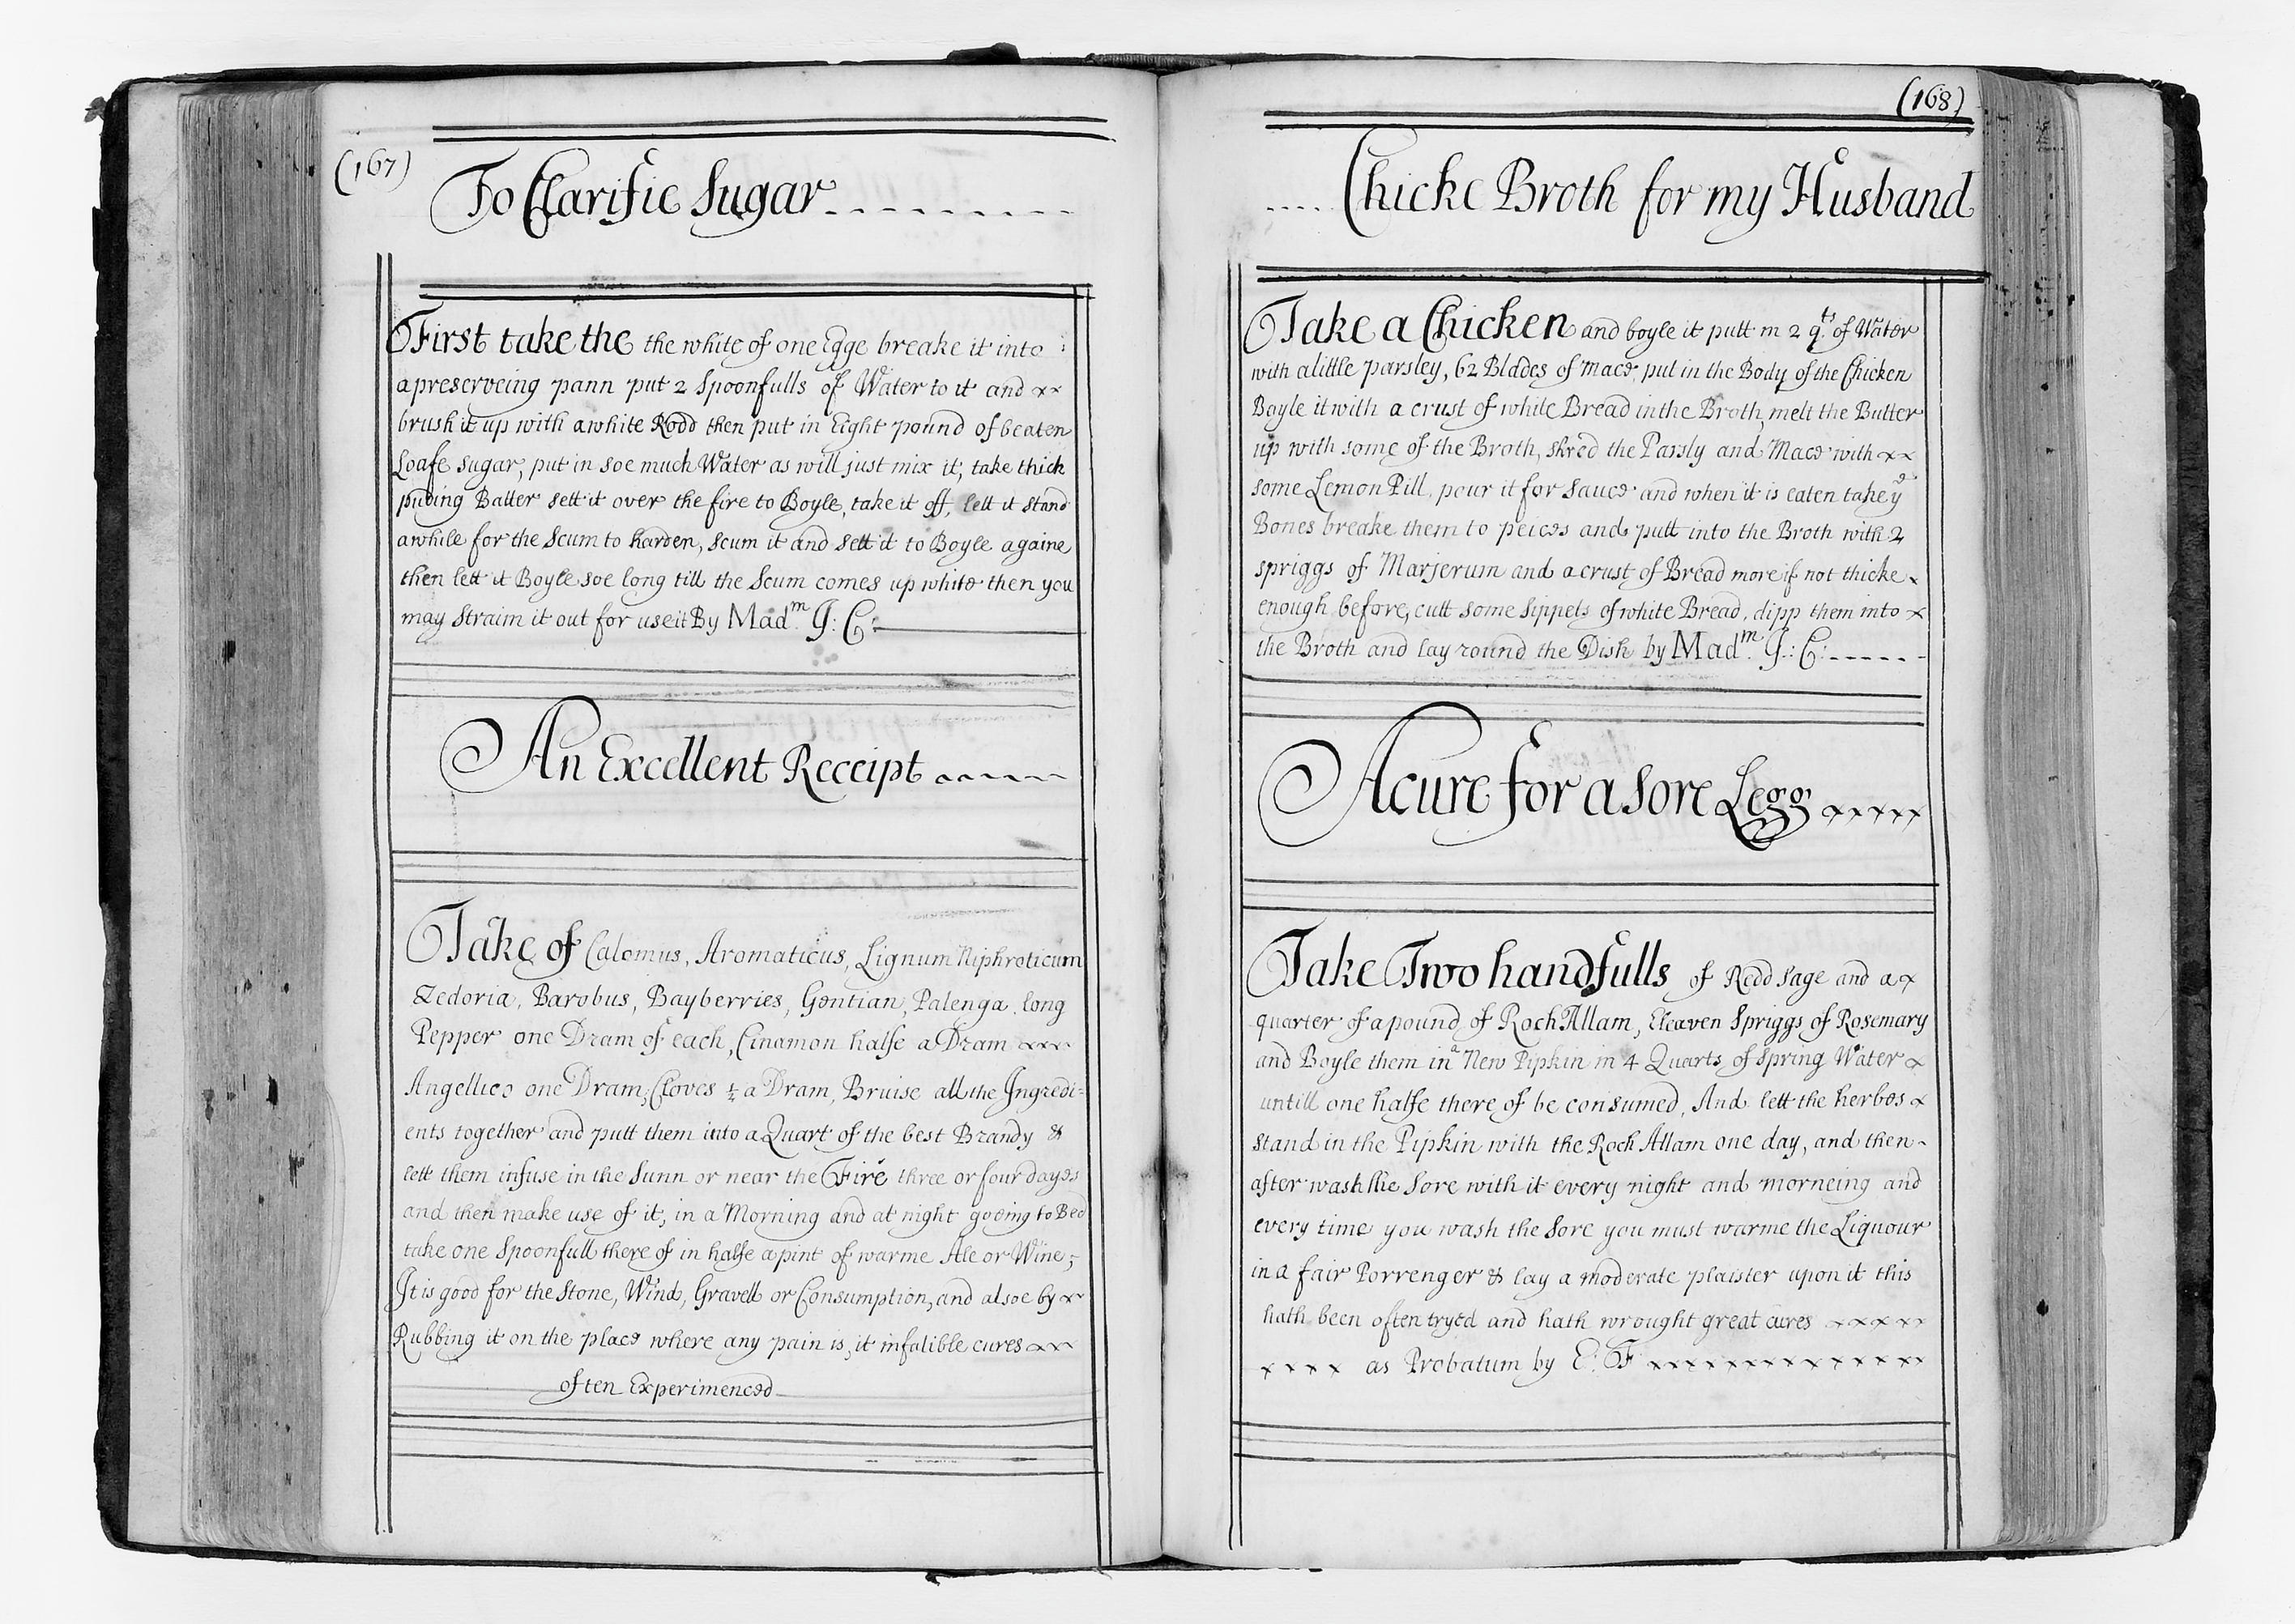 (167)
To Clarifie Sugar
First take the the white of one Egge breake it into
a preserveing pann put 2 Spoonfulls of Water to it and
brush it up with a white Rodd then put in Eight pound of beaten
Loafe sugar, put in soe much Water as will just mix it, take thick
puding Batter sett it over the fire to Boyle, take it off, lett it stand
awhile for the Scum to harden, scum it and sett it to Boyle againe
then lett it Boyle soe long till the Scum comes up white then you
may straim it out for useit By Madm. J: C:
An Excellent Receipt
Take of Calomus, Aromaticus, Lignum Niphroticum
Zedoria, Barobus, Bayberries, Gentian, Palenga, long
Pepper one Dram of each, Cinamon halfe a Dram
Angellico one Dram, Cloves ½ a Dram, Bruise all the Ingredi=
ents together and putt them into a Quart of the best Brandy &
lett them infuse in the Sunn or near the Fire three or four dayes
and then make use of it, in a Morning and at night goeing to Bed
take one Spoonfull there of in halfe a pint of warme Ale or Wine;
It is good for the Stone, Wind, Gravell or Consumption, and alsoe by
Rubbing it on the place where any pain is, it infalible cures
often Experimenced
(168)
Chicke Broth for my Husband
Take a Chicken and boyle it putt in 2 qts. of Water
with a little parsley, 62 Blades of mace, put in the Body of the Chicken
Boyle it with a crust of white Bread in the Broth, melt the Butter
up with some of the Broth, shred the Parsly and Mace with
some Lemon Pill, pour it for sauce and when it is eaten take ye
Bones breake them to peices and putt into the Broth with 2
spriggs of Marjerum and a crust of Bread more if not thicke
enough before, cutt some sippets of white Bread, dipp them into
the Broth and lay round the Dish by Madm. J: C:
A cure for a Sore Legg
Take Two handfulls of Redd sage and a
quarter of a pound of Roch Allam, Eleaven Spriggs of Rosemary
and Boyle them in a New Pipkin in 4 Quarts of Spring Water
untill one halfe there of be consumed, And lett the herbes
stand in the Pipkin with the Roch Allam one day, and then
after wash the Sore with it every night and morneing and
every time you wash the Sore you must warme the Liquour
in a fair Porrenger & lay a moderate plaister upon it this
hath been often tryed and hath wrought great cures
as Probatum by E: F